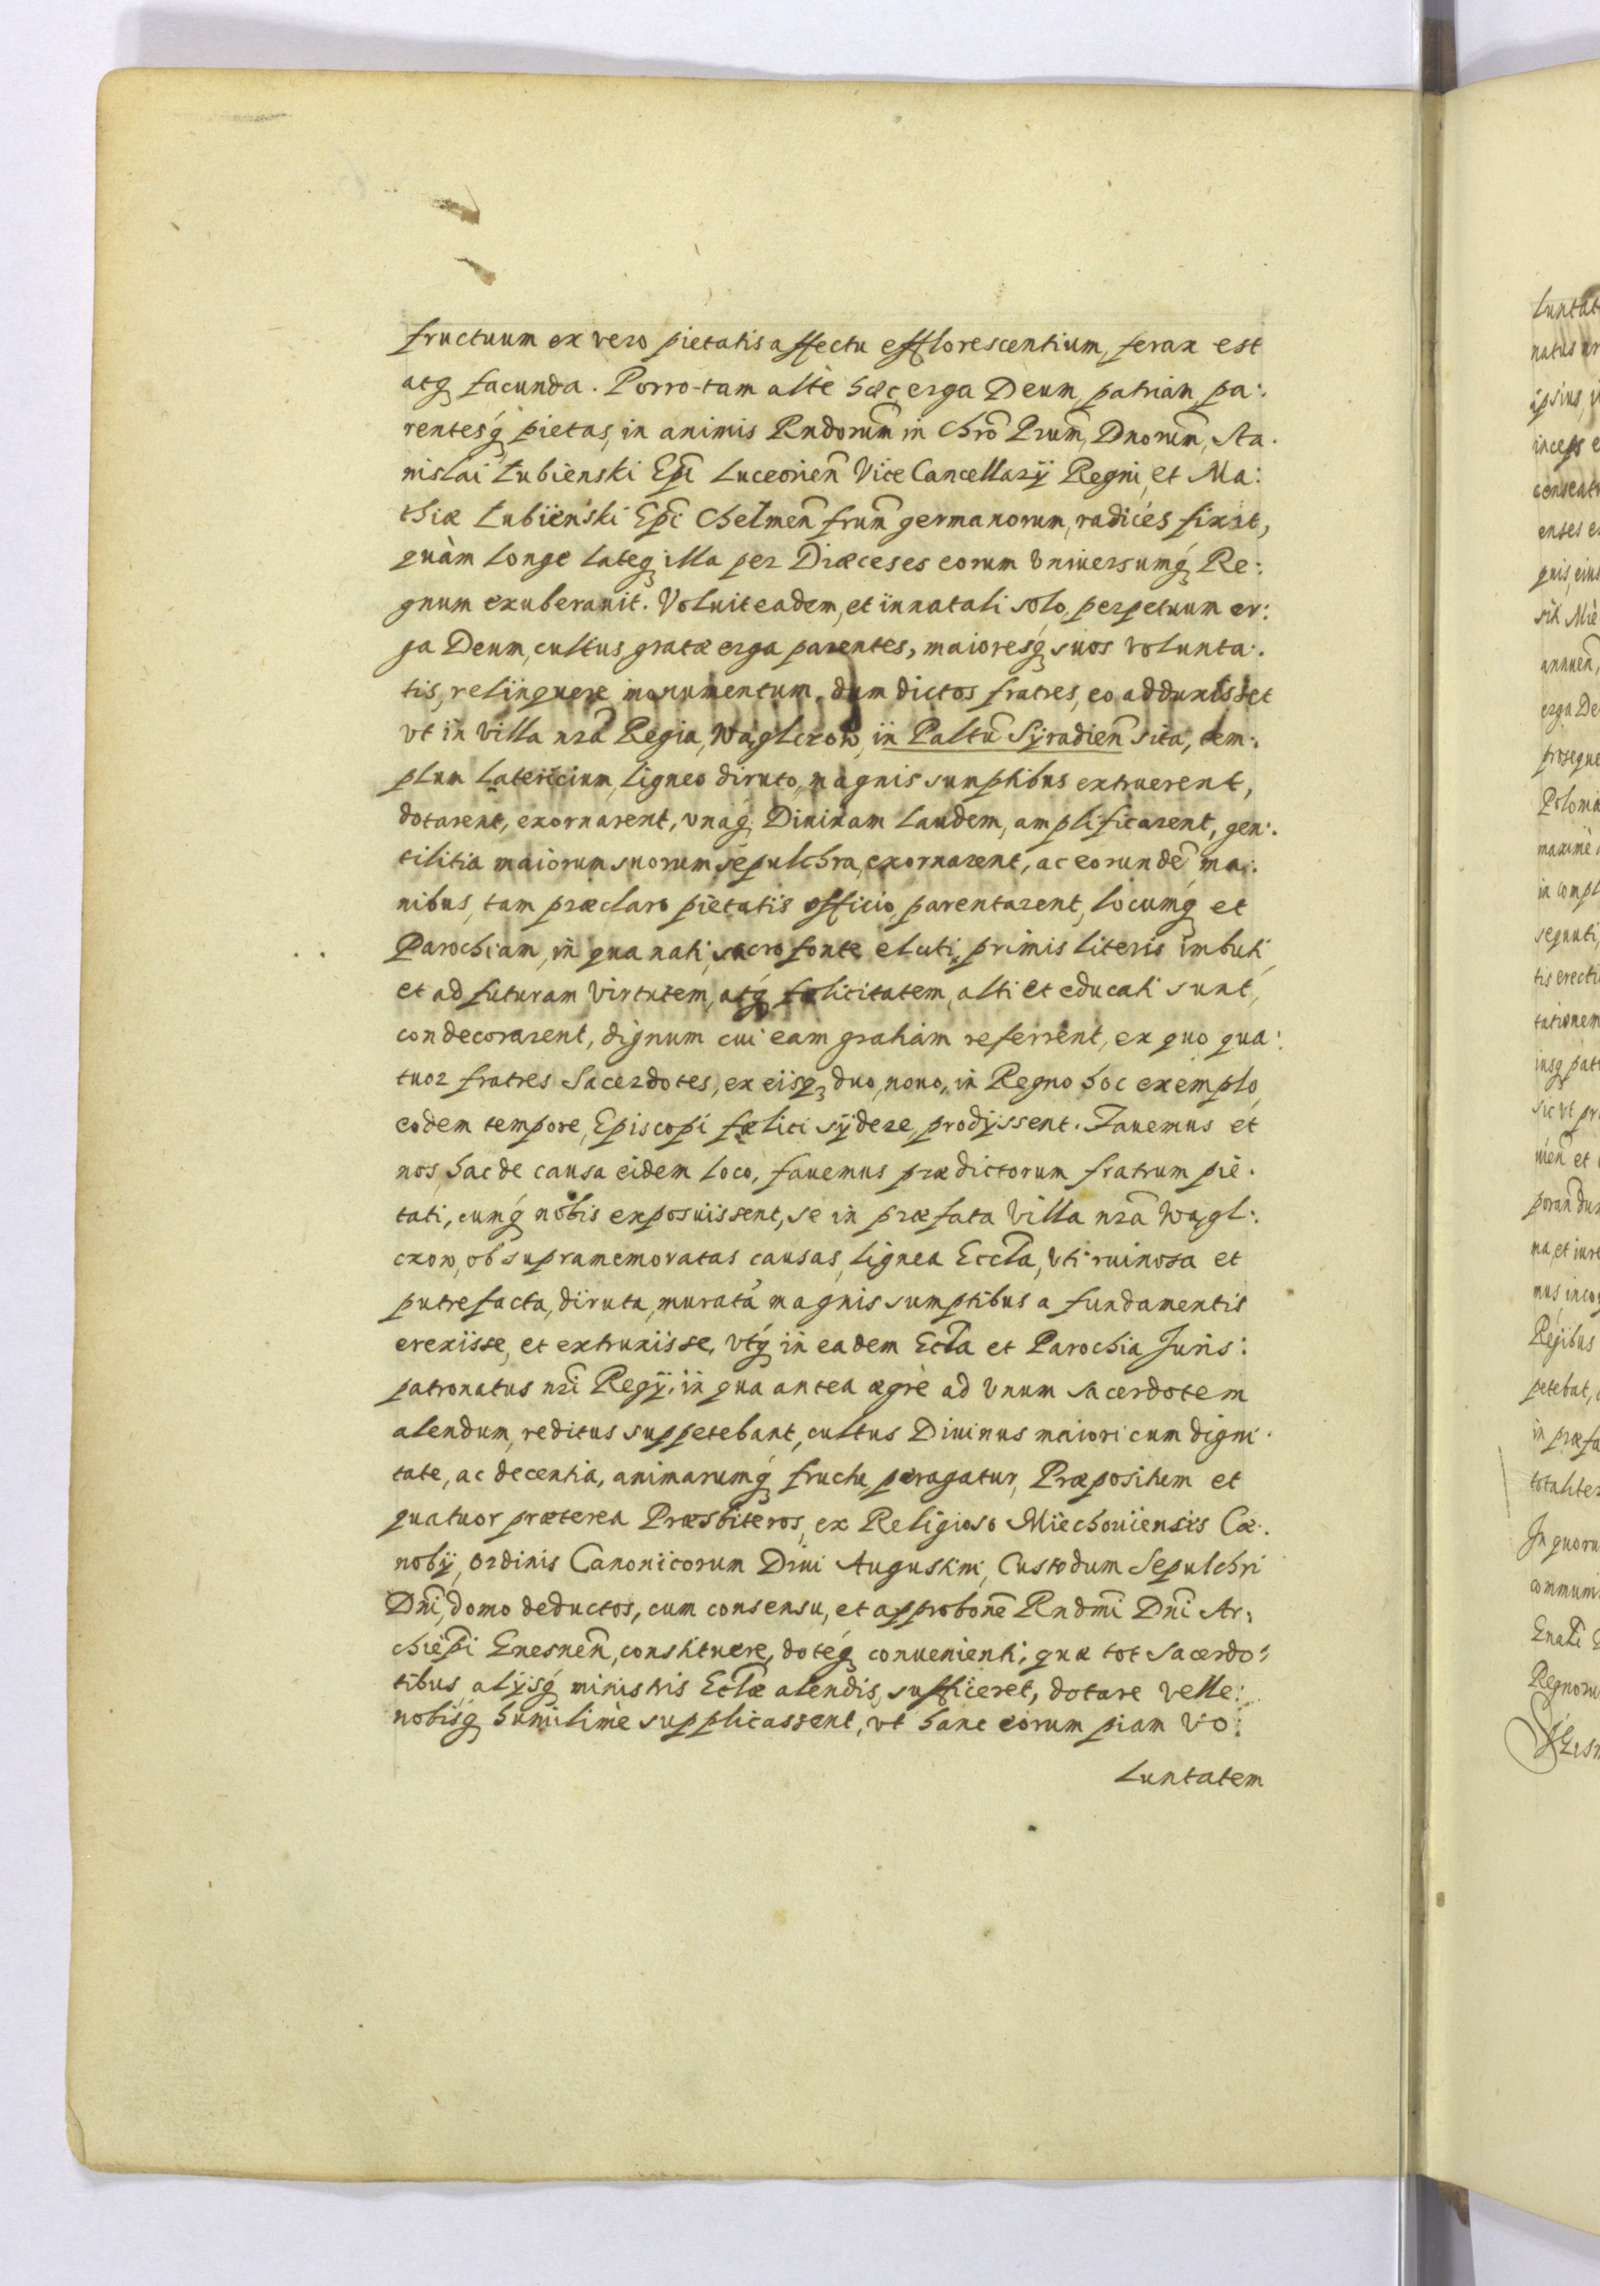 fructuum ex vero pietatis affectu efflorescentium, ferax est
atq facunda. Porro tam altè hæc, erga Deum, patriam pa:
rentesq́ pietas, in animis Rndorum̃ in Chrõ Prum̃, Dnorum̃, Sta.
nislai Łubienski Ep̃i Luceorien̄ Vice Cancellarÿ Regni, et Ma:
thiæ Łubienski Ep̃i Chelmen̄ frum̃ germanorum, radices fixit,
quàm longe lateq illa per Diæceses eorum Vniversumq́ Re:
gnum exuberauit. Voluit eadem, et in natali solo, perpetuum er:
ga Deum, cultus gratæ erga parentes, maioresq́ suos volunta.
tis, relinquere monumentum, dum dictos fratres, eo adduxisset
vt in Villa nrã Regia, Wąglczow, in Paltũ Syradien̄ sita, tem:
plum latericium, ligneo diruto, magnis sumptibus extruerent,
dotarent, exornarent, vnaq Diuinam laudem, amplificarent, gen:
tilitia maiorum suorum sepulchra, exornarent, ac eorundẽ ma:
nibus, tam præclaro pietatis officio, parentarent, locumq́ et
Parochiam, in qua nati, sacro fonte eluti, primis literis imbuti,
et ad futuram Virtutem, atq́ fælicitatem, alti et educati sunt,
condecorarent, dignum cui eam gratiam referrent, ex quo qua:
tuor fratres Sacerdotes, ex eisq, duo, nouo, in Regno hoc exemplo,
eodem tempore, Episcopi fælici sÿdere, prodÿssent. Fauemus et
nos, hac de causa eidem loco, fauemus prædictorum fratrum pie.
tati, cumq́ nobis exposuissent, se in præfata Villa nrã Wągl:
czow, ob supramemoratas causas, lignea Eccl̃a, vti ruinosa et
putrefacta, diruta, muratã magnis sumptibus a fundamentis
erexisse, et extruxisse, vtq́ in eadem Eccl̃a et Parochia Juris:
patronatus nr̃i Regÿ, in qua antea ægrè ad vnum sacerdotem
alendum, reditus suppetebant, cultus Diuinus maiori cum digni.
tate, ac decentia, animarumq́ fructu, peragatur, Præpositum et
quatuor præterea Præsbiteros, ex Religioso Miechouiensis Cæ.
nobÿ, Ordinis Canonicorum Diui Augustini, Custodum Sepulchri
Dñi, domo deductos, cum consensu, et approbõne Rndm̃i Dñi Ar:
chiep̃i Gnesnen̄, constituere, doteq́ conuenienti, quæ tot sacerdo:
tibus, alÿsq́ ministris Eccl̃æ alendis, sufficeret, dotare velle:
nobisq́ humilime supplicassent, vt hanc eorum piam vo:
luntatem